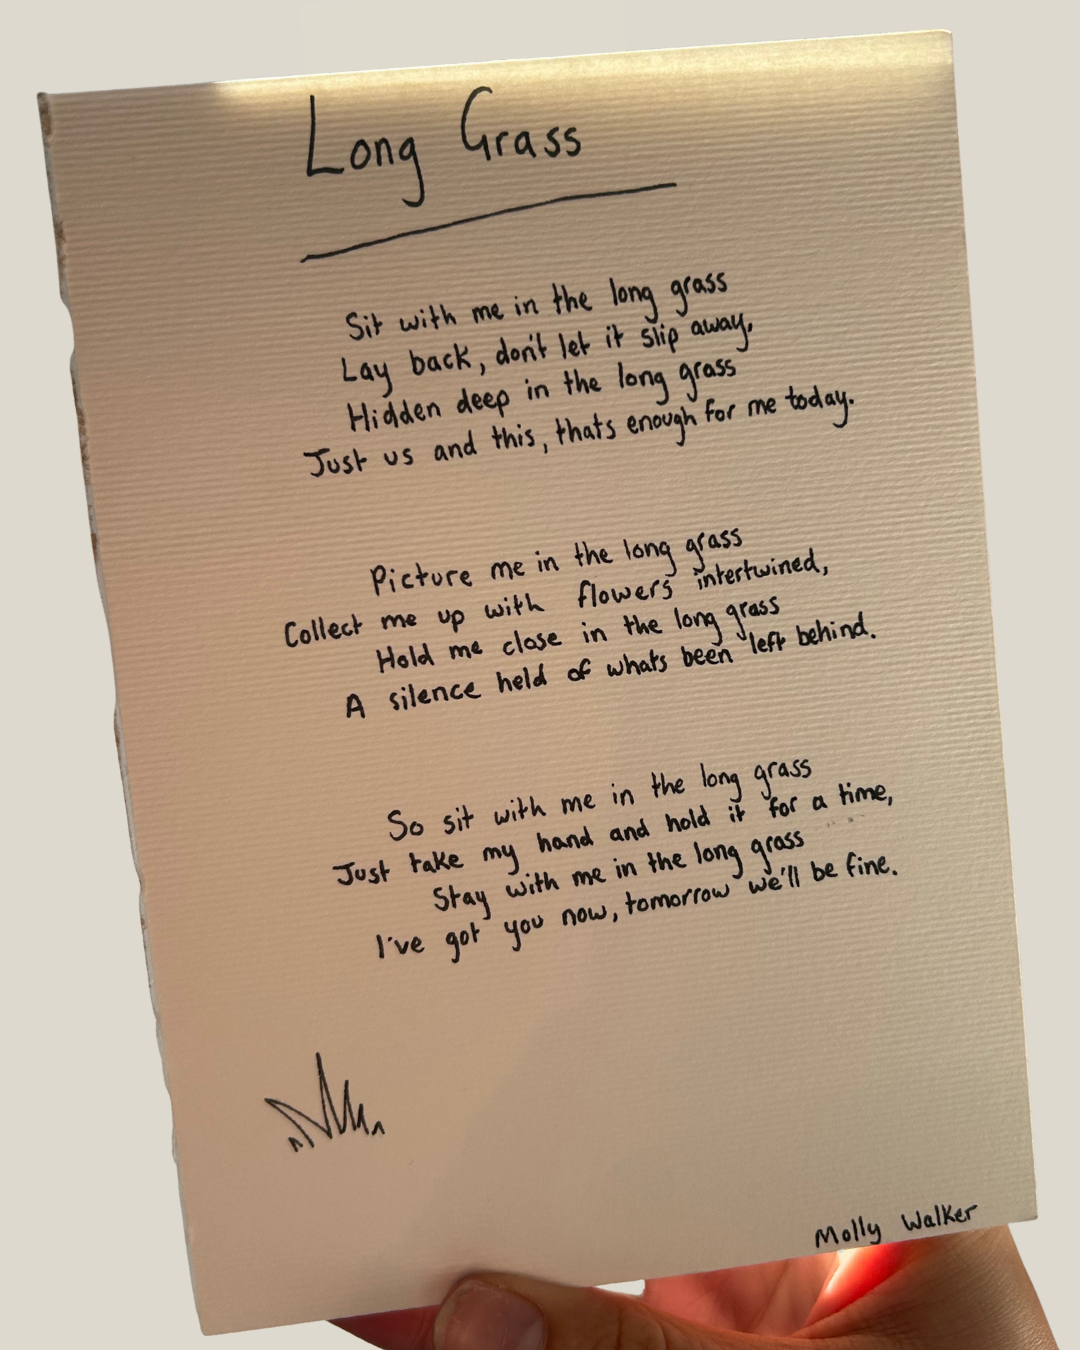 Long Grass
Sit with me in the long grass
Lay back, don't let it slip away,
Hidden deep in the long grass
Just us and this, thats enough for me today.
Picture me in the long grass
Collect me up with flowers intertwined,
Hold me close in the long grass
A silence held of whats been left behind.
So sit with me in the long grass
Just take my hand and hold it for a time,
Stay with me in the long grass
I've got you now, tomorrow we'll be fine.
Molly Walker